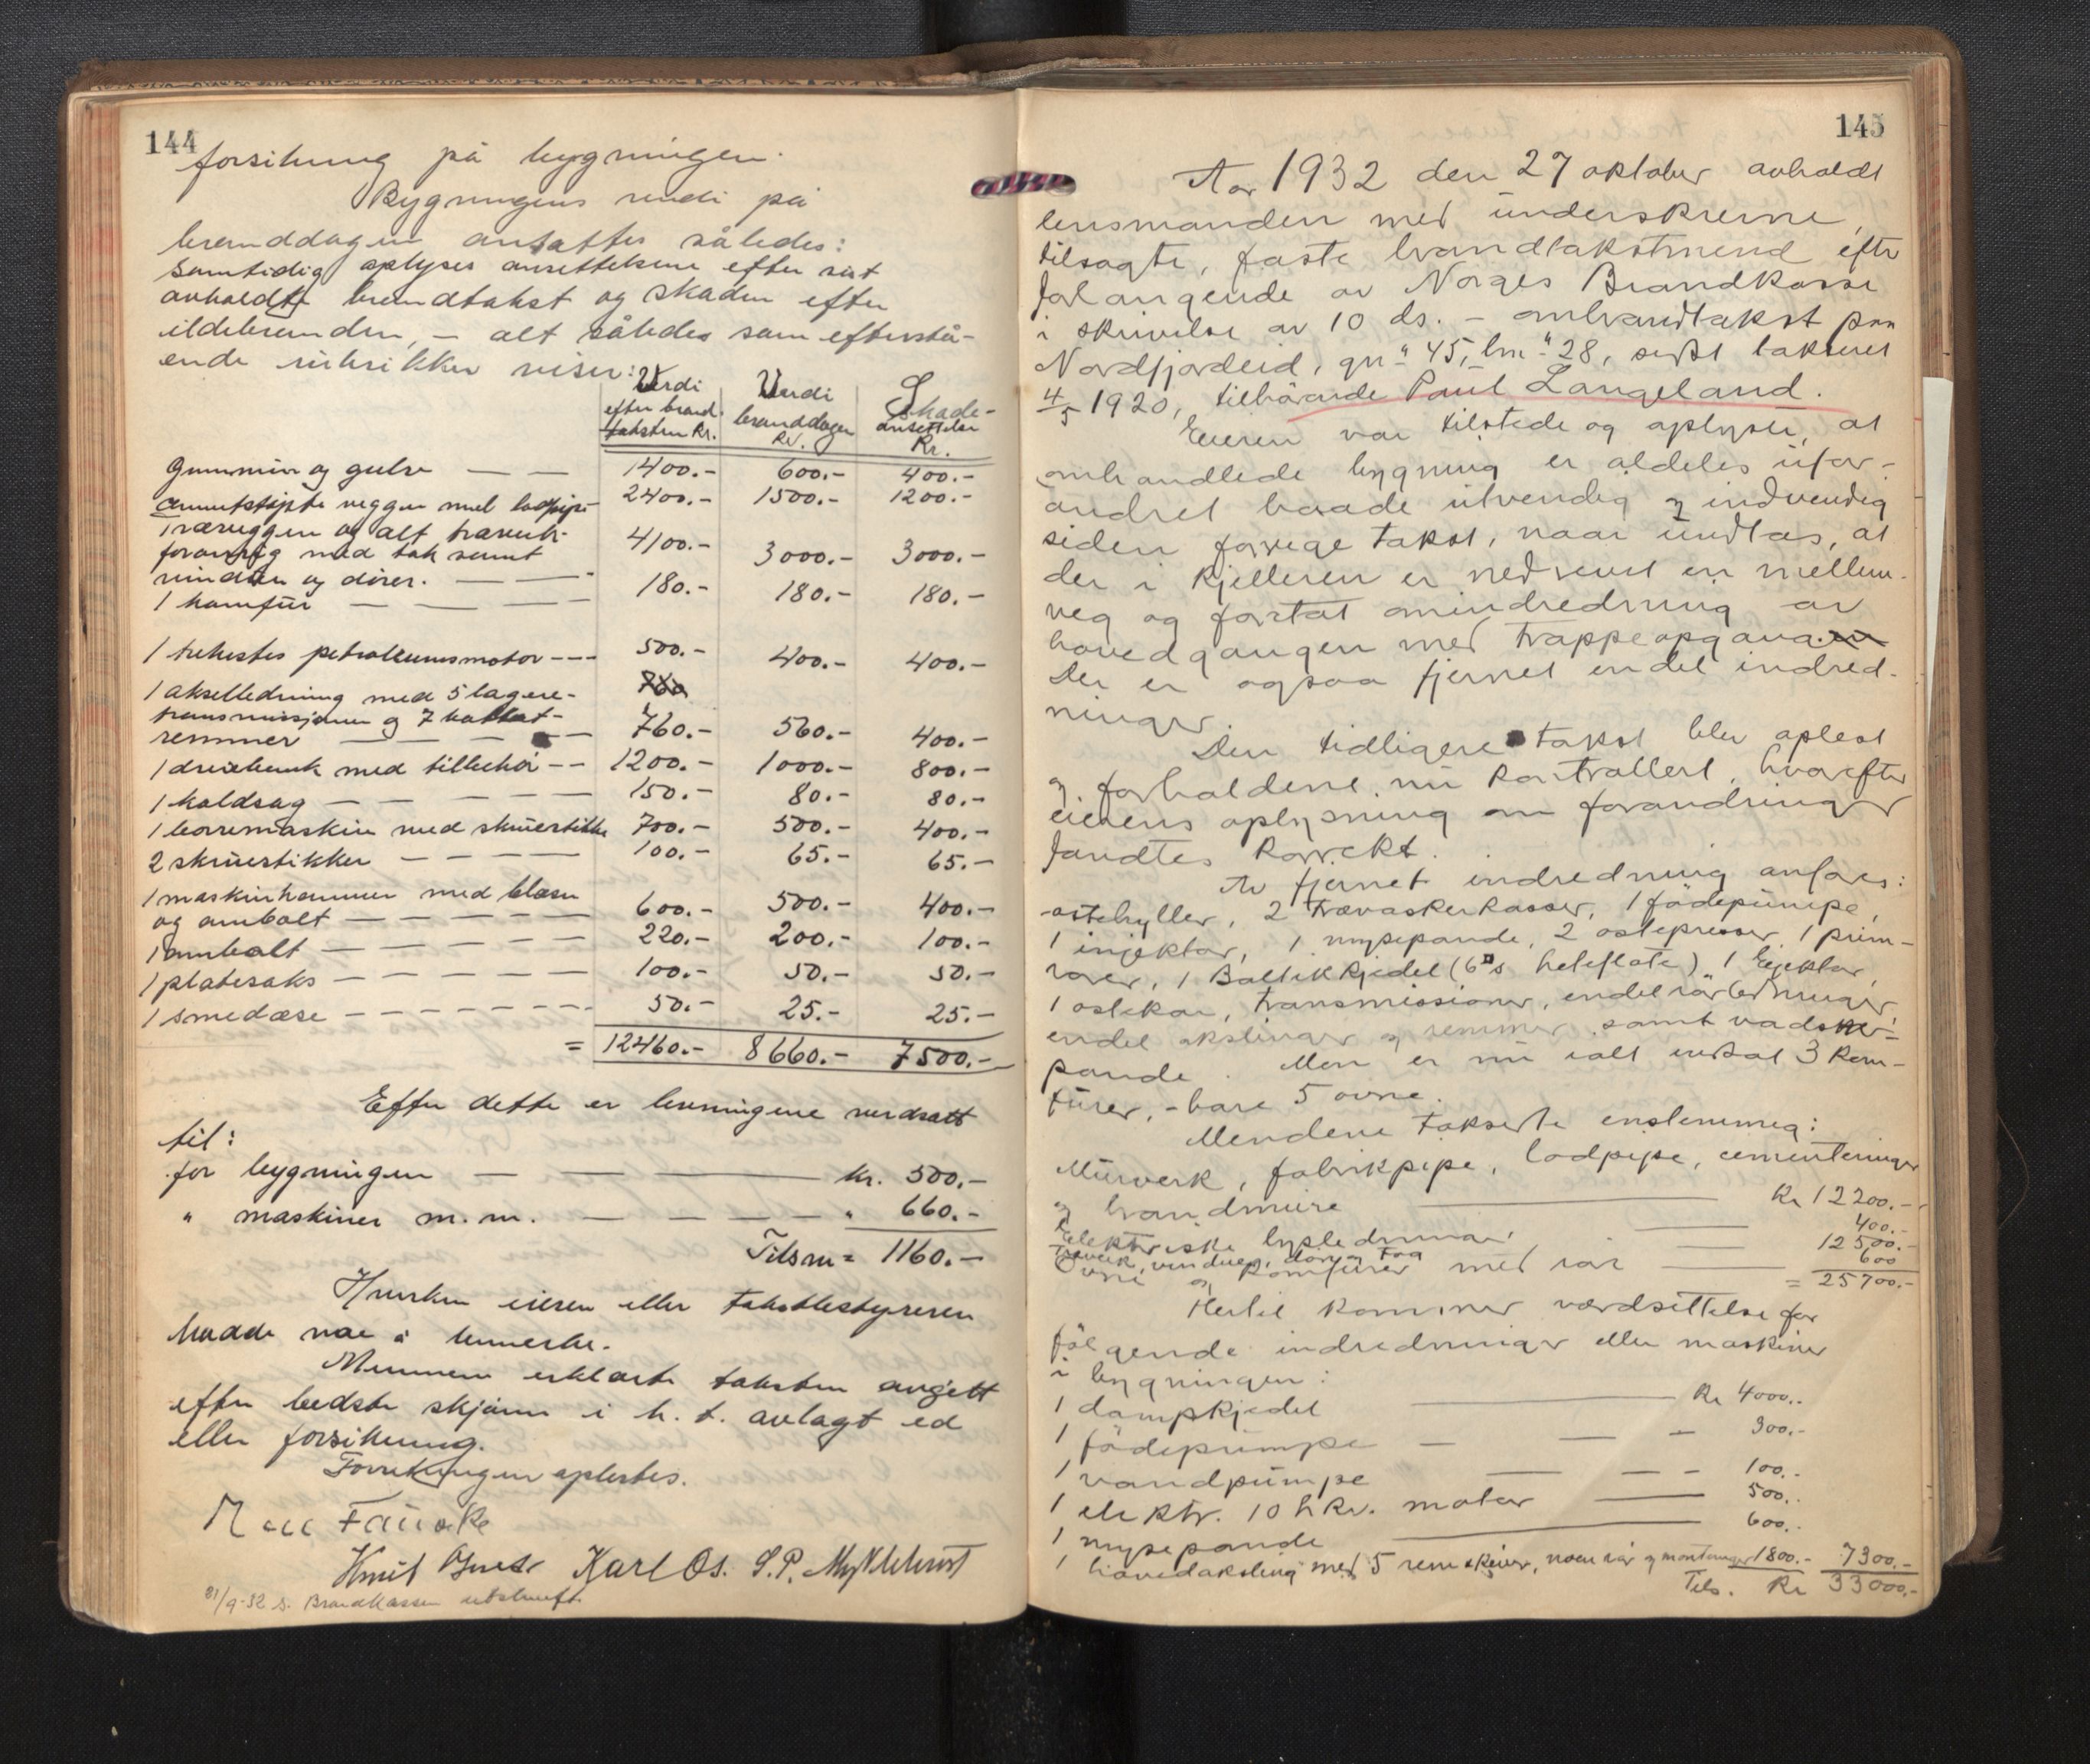 144
forsikring på bygningen.
Bygningens verdi på
branddagen ansattes således:
samtidig oplyses ansettelsene efter sist
avholdte brandtakst og skaden efter
ildebranden, – alt således som efterstå-
ende rubrikker viser:
Verdi efter brand-taksten Kr. Verdi branddagen Kr. Skade-ansettelse Kr.
Grunnmur og gulv — — 1400.- 600.- 400.-
Cementstøpte vegger med lodpipe 2400.- 1500.- 1200.-
Trævegger og alt træverk
forøvrig med tak samt 4100.- 3000.- 3000.-
vinduer og dører. — —
1 komfur — — — 180.- 180.- 180.-
1 hehestes petroleumsmotor --- 500.- 400.- 400.-
1 akselledning med 5 lagere- 760
transmissjoner og 7
remmer — — — 760.- 560.- 400.-
1 dreiebenk med tilbehør -- 1200.- 1000.- 800.-
1 koldsag — — — — 150.- 80.- 80.-
1 borremaskin med skruestikke 700.- 500.- 400.-
2 skruestikker — — — — 100.- 65.- 65.-
1 maskinhammer med blæser
og ambolt — — — — — 600.- 500.- 400.-
1 ambolt — — — — — 220.- 200.- 100.-
1 platesaks — — — — — 100.- 50.- 50.-
1 smedæse — — — — — 50.- 25.- 25.-
= 12460.- 8660.- 7500.-
Efter dette er levningene verdsatt
til:
for bygningen — — — kr. 500.-
" maskiner m.m. — — — " 660.-
Tilsm = 1160.-
Hverken eieren eller takstbestyreren
hadde noe å bemerke.
Mennene erklærte taksten avgitt
efter bedste skjønn i h. t. avlagt ed
eller forsikring.
Forretningen oplestes.
Fauske
Knut Karl Os. S.P. Myklebust
31/9-32 s. Brandkassen utskrift.
145
Aar 1932 den 27 oktober avholdt
lensmanden med underskrevne,
tilsagte, faste brandtakstmend efter
forlangende av Norges Brandkasse
i skrivelse av 10 ds. – ombrandtakst paa
Nordfjordeid, gn" 45, bn" 28, sidst taksert
4/5 1920, tilhørende Paul Langeland.
Eieren var tilstede og oplyste, at
omhandlede bygning er aldeles ufor-
andret baade utvendig og indvendig
siden forrige takst, naar undtas, at
der i kjelleren er nedrevet en mellem-
veg og foretat omindredning av
hovedgangen med trappeopgang.en
Der er ogsaa fjernet endel indred-
ninger.
Den tidligere takst blev oplest
og forholdene nu kontrollert, hvorefter
eierens oplysning om forandringer
fandtes korrekt.
Av fjernet indredning anføres:
ostehyller, 2 trævaskerkasser, 1 fødepumpe,
1 injektor, 1 mysepande, 2 ostepresser, 1 prim-
rører, 1 Baltikkjedel (6□s heteflate), 1 Ejektor,
1 ostekar, transmissioner, endel rørledninger,
endel akslinger og remmer samt vadsker-
pande. Men er nu ialt indsat 3 kom-
fürer, - bare 5 ovne.
Mendene takserte enstemmig:
Murverk, fabrikpipe, lodpipe, cementeringer
og brandmure — — Kr 12200.-
Elektriske lysledninger — 400.-
Træverk, vinduer, dører, tag 12500.-
Ovne og komfürer med rør — 600
= 25700.-
Hertil kommer værdsettelse for
følgende indredninger eller maskiner
i bygningen:
1 dampkjedel — Kr 4000.-
1 fødepumpe — — — 300.-
1 vandpumpe — — — 100.-
1 elektr. 10 hkr. motor — 500.-
1 mysepande — 600.-
1 hovedaksling med 5 remskiver, noen rør og monteringer 1800.- 7300.-
Tils. Kr 33000.-